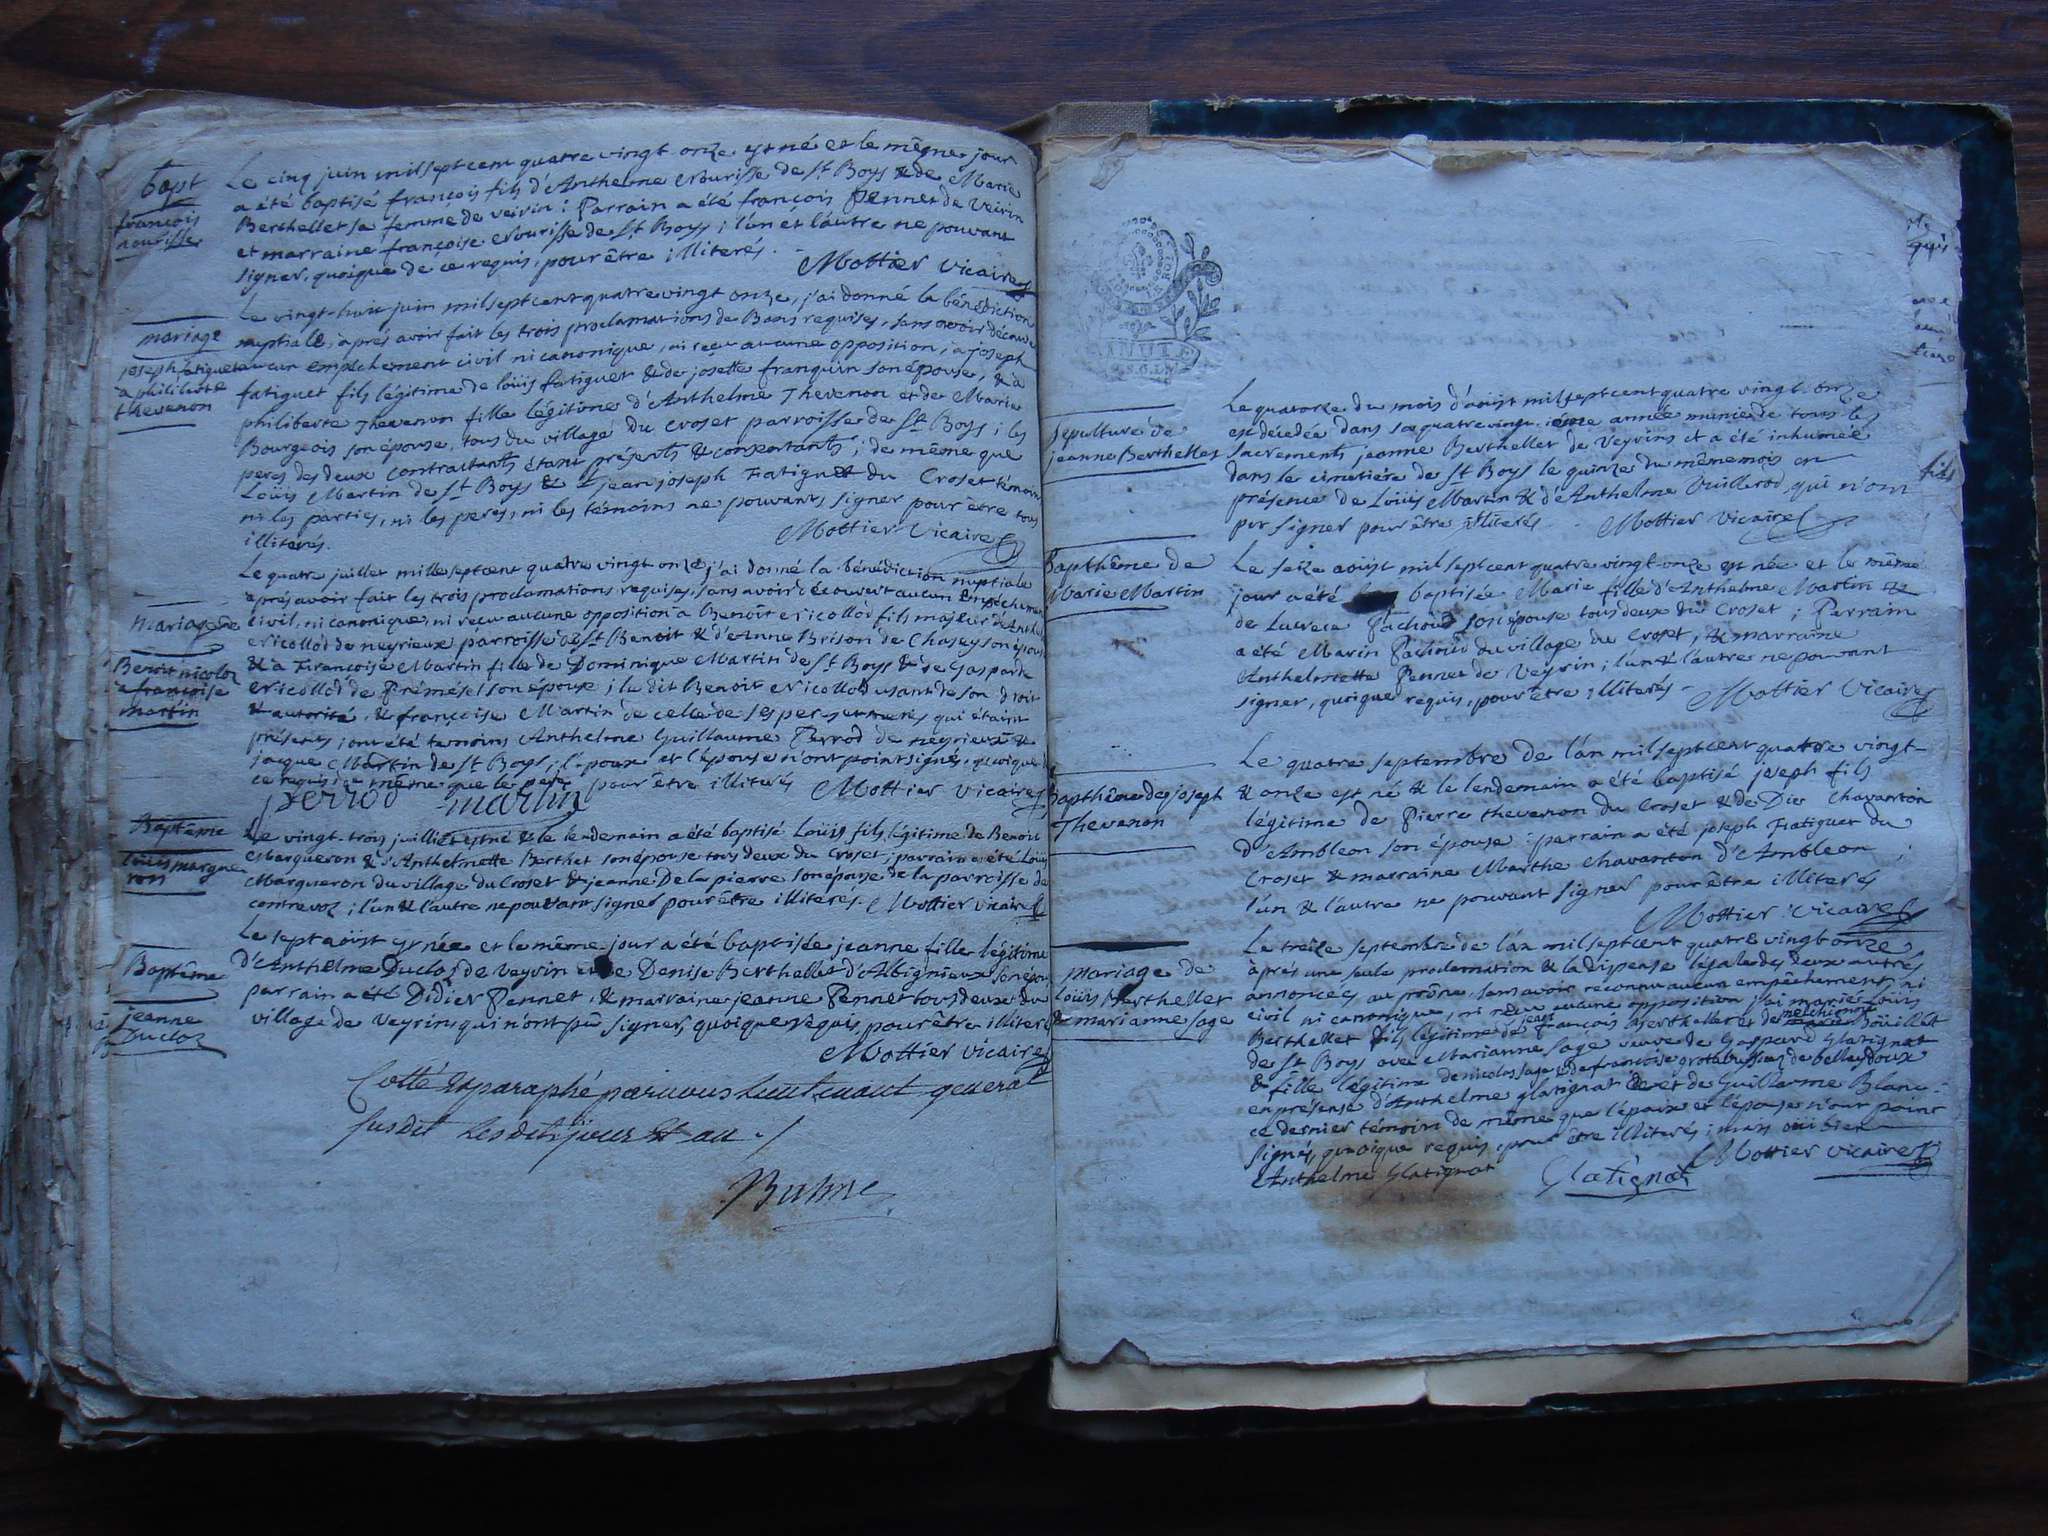 bapt
françois
nourisse
Le cinq juin mil sept cent quatre vingt onze est né et le même jour
a été baptisé françois fils d'Anthelme Nourisse de St Boys & de Marie
Berthellet sa femme de veirin ; Parrain a été françois Pennet de Veirin
et marraine françoise Nourisse de St Boys ; l'un et l'autre ne pouvant
signer, quoique de ce requis, pour être illiterés.
Mottier Vicaire
mariage
joseph fatiguet
a philiberte
thevenon
Le vingt-huit juin mil sept cent quatre vingt onze, j'ai donné la bénédiction
nuptiale, après avoir fait les trois proclamations de Bans requises, sans avoir découvert
aucun empêchement civil ni canonique, ni reçu aucune opposition, a joseph
fatiguet fils légitime de loüis fatiguet & de josette franquin son épouse, & à
philiberte Thevenon fille légitime d'Anthelme Thevenon et de Marie
Bourgeois son épouse, tous du village du Croset parroisse de St Boys ; les
peres des deux contractants étant présents & consentants ; de même que
Loüis Martin de St Boys & jean joseph Fatiguet du Croset témoins
ni les parties, ni les peres, ni les témoins ne pouvants signer pour être tous
illiterés.
Mottier Vicaire
mariage de
Benoit nicolod
a françoise
martin
Le quatre juillet mille sept cent quatre vingt onze, j'ai donné la bénédiction nuptiale
après avoir fait les trois proclamations requises, sans avoir découvert aucun empéchement
civil, ni canonique, ni reçu aucune opposition a Benoît Nicollod fils majeur d'Anthelme
Nicollod de neyrieux parroisse de St Benoit & d'Anne Brison de Chasey son épouse
& a Françoise Martin fille de Dominique Martin de St Boys & de Gasparde
Nicollod de Prémésel son épouse ; le dit Benoit Nicollod usant de son droit
& autorité, & françoise Martin de celle de ses pere et mere qui étaint
présents ; ont été temoins Anthelme Guillaume Perrod de neyrieux &
jacque Martin de St Boys ; l'epoux et l'épouse n'ont point signés, quoique de
ce requis ; de même que le pere pour être illiterés Mottier Vicaire
perrod martin
Baptême
loüis marque
ron
Le vingt-trois juillet est né & le lendemain a été baptisé Loüis fils légitime de Benoit
Marqueron & d'Anthelmette Berthet son épouse tous deux du Croset ; parrain a été Loüis
Marqueron du village du Croset & jeanne De la pierre son épouse de la parroisse de
contrevoz ; l'un & l'autre ne pouvant signer pour être illiterés. Mottier vicaire
Baptême
jeanne
Ducloz
Le sept aoüst est née et le même jour a été baptisée jeanne fille légitime
d'Anthelme Duclos de Veyrin et de Denise Berthellet d'Albignieux son épouse
parrain a été Didier Pennet, & marraine jeanne Pennet tous deux du
village de Veyrins qui n'ont pû signer, quoique requis, pour être illiterés
Mottier vicaire
Cotté & paraphé par nous Lieutenant general
susdit Lesdits jour & an ./
Sepulture de
jeanne Berthellet
Le quatorze du mois d'aoüst mil sept cent quatre vingt onze
est décédée dans sa quatre vingt année munie de tous les
sacrements jeanne Berthellet de Veyrins et a été inhumée
dans le cimetière de St Boys le quinze du même mois en
présence de Loüis Martin & d'Anthelme Vuillerod, qui n'ont
pu signer pour être illiterés Mottier Vicaire
Bapthême de
Marie Martin
Le seize aoüst mil sept cent quatre vingt-onze est née et le même
jour a été baptisée Marie fille d'Anthelme Martin &
de Lucrece Pachoud son épouse tous deux du Croset ; Parrain
a été Marin Pachoud du village du Croset, & marraine
Anthelmette Pennet de Veyrin ; l'un & l'autre ne pouvant
signer, quoique requis, pour être illiterés - Mottier Vicaire
Bapthême de joseph
Thevenon
Le quatre septembre de l'an mil sept cent quatre vingt-
& onze est né & le lendemain a été baptisé joseph fils
légitime de Pierre thevenon du Croset & de Die Chavanton
d'Ambleon son épouse ; parrain a été joseph Fatiguet du
Croset & marraine Marthe Chavanton d'Ambleon ;
l'un & l'autre ne pouvant signer pour être illiterés
Mottier Vicaire
mariage de
Loüis Berthellet
& marianne sage
Le treize septembre de l'an mil sept cent quatre vingt onze
après une seule proclamation & la dispense légale des deux autres
annoncées au prône, sans avoir reconnu aucun empêchement, ni
civil ni canonique, ni reçu aucune opposition j'ai marié Loüis
jean
melchionne
Berthellet fils légitime de françois Berthellet et de Boüillet
de St Boys avec Marianne Sage veuve de Gaspard Glatignat
& fille légitime de nicolas sage & de francoise de belleydoux
en présense d'Anthelme glatignat & de Guillarme Blanc
ce dernier témoin de même que l'époux et l'épouse n'ont point
signés, quoique requis, pour être illiterés ; mais oui bien
Anthelme Glatignat Glatignat Mottier Vicaire